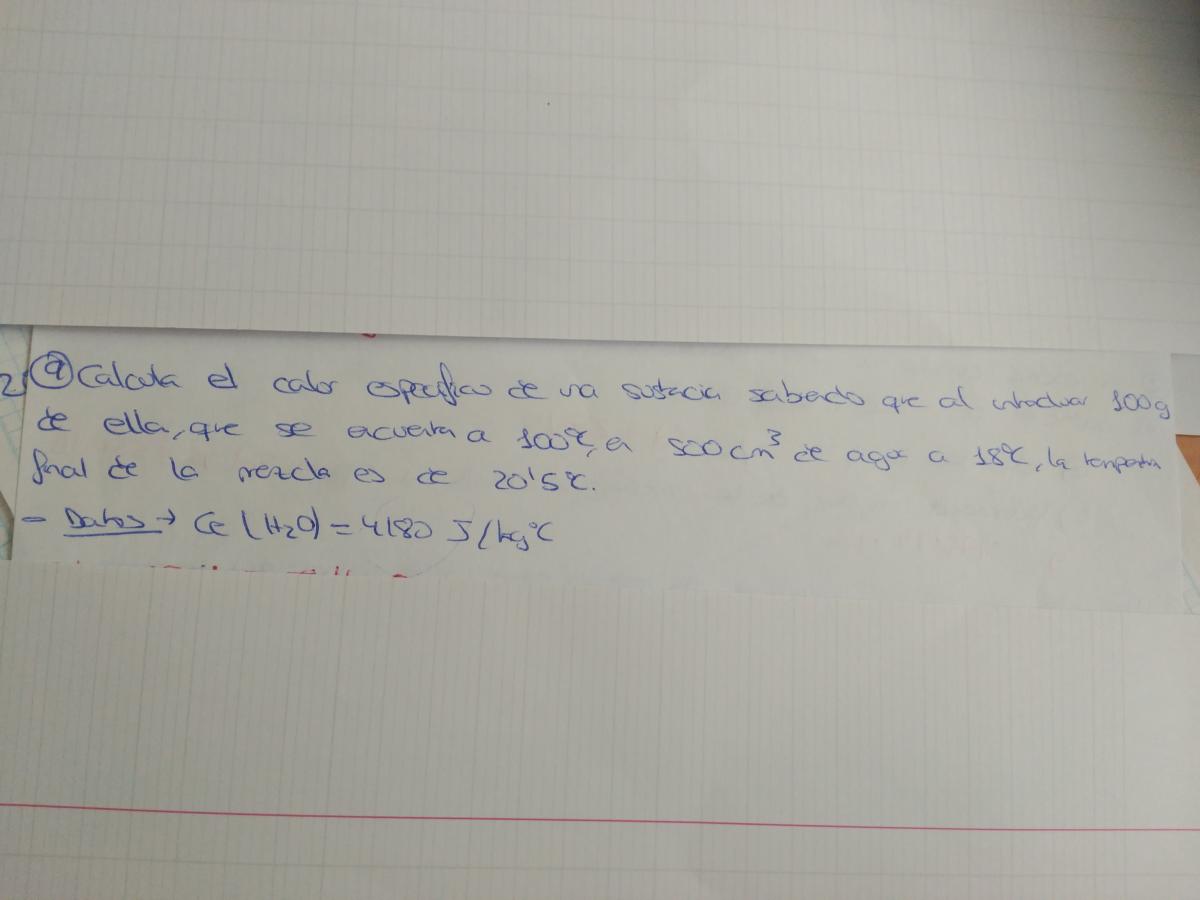 2) 9 Calcula el calor específico de una sustancia sabiendo que al introducir 100g
de ella, que se encuentra a 100℃, en 500 cm³ de agua a 18℃, la temperatura
final de la mezcla es de 20'5℃.
- Datos → Ce (H₂O) = 4180 J/kg℃